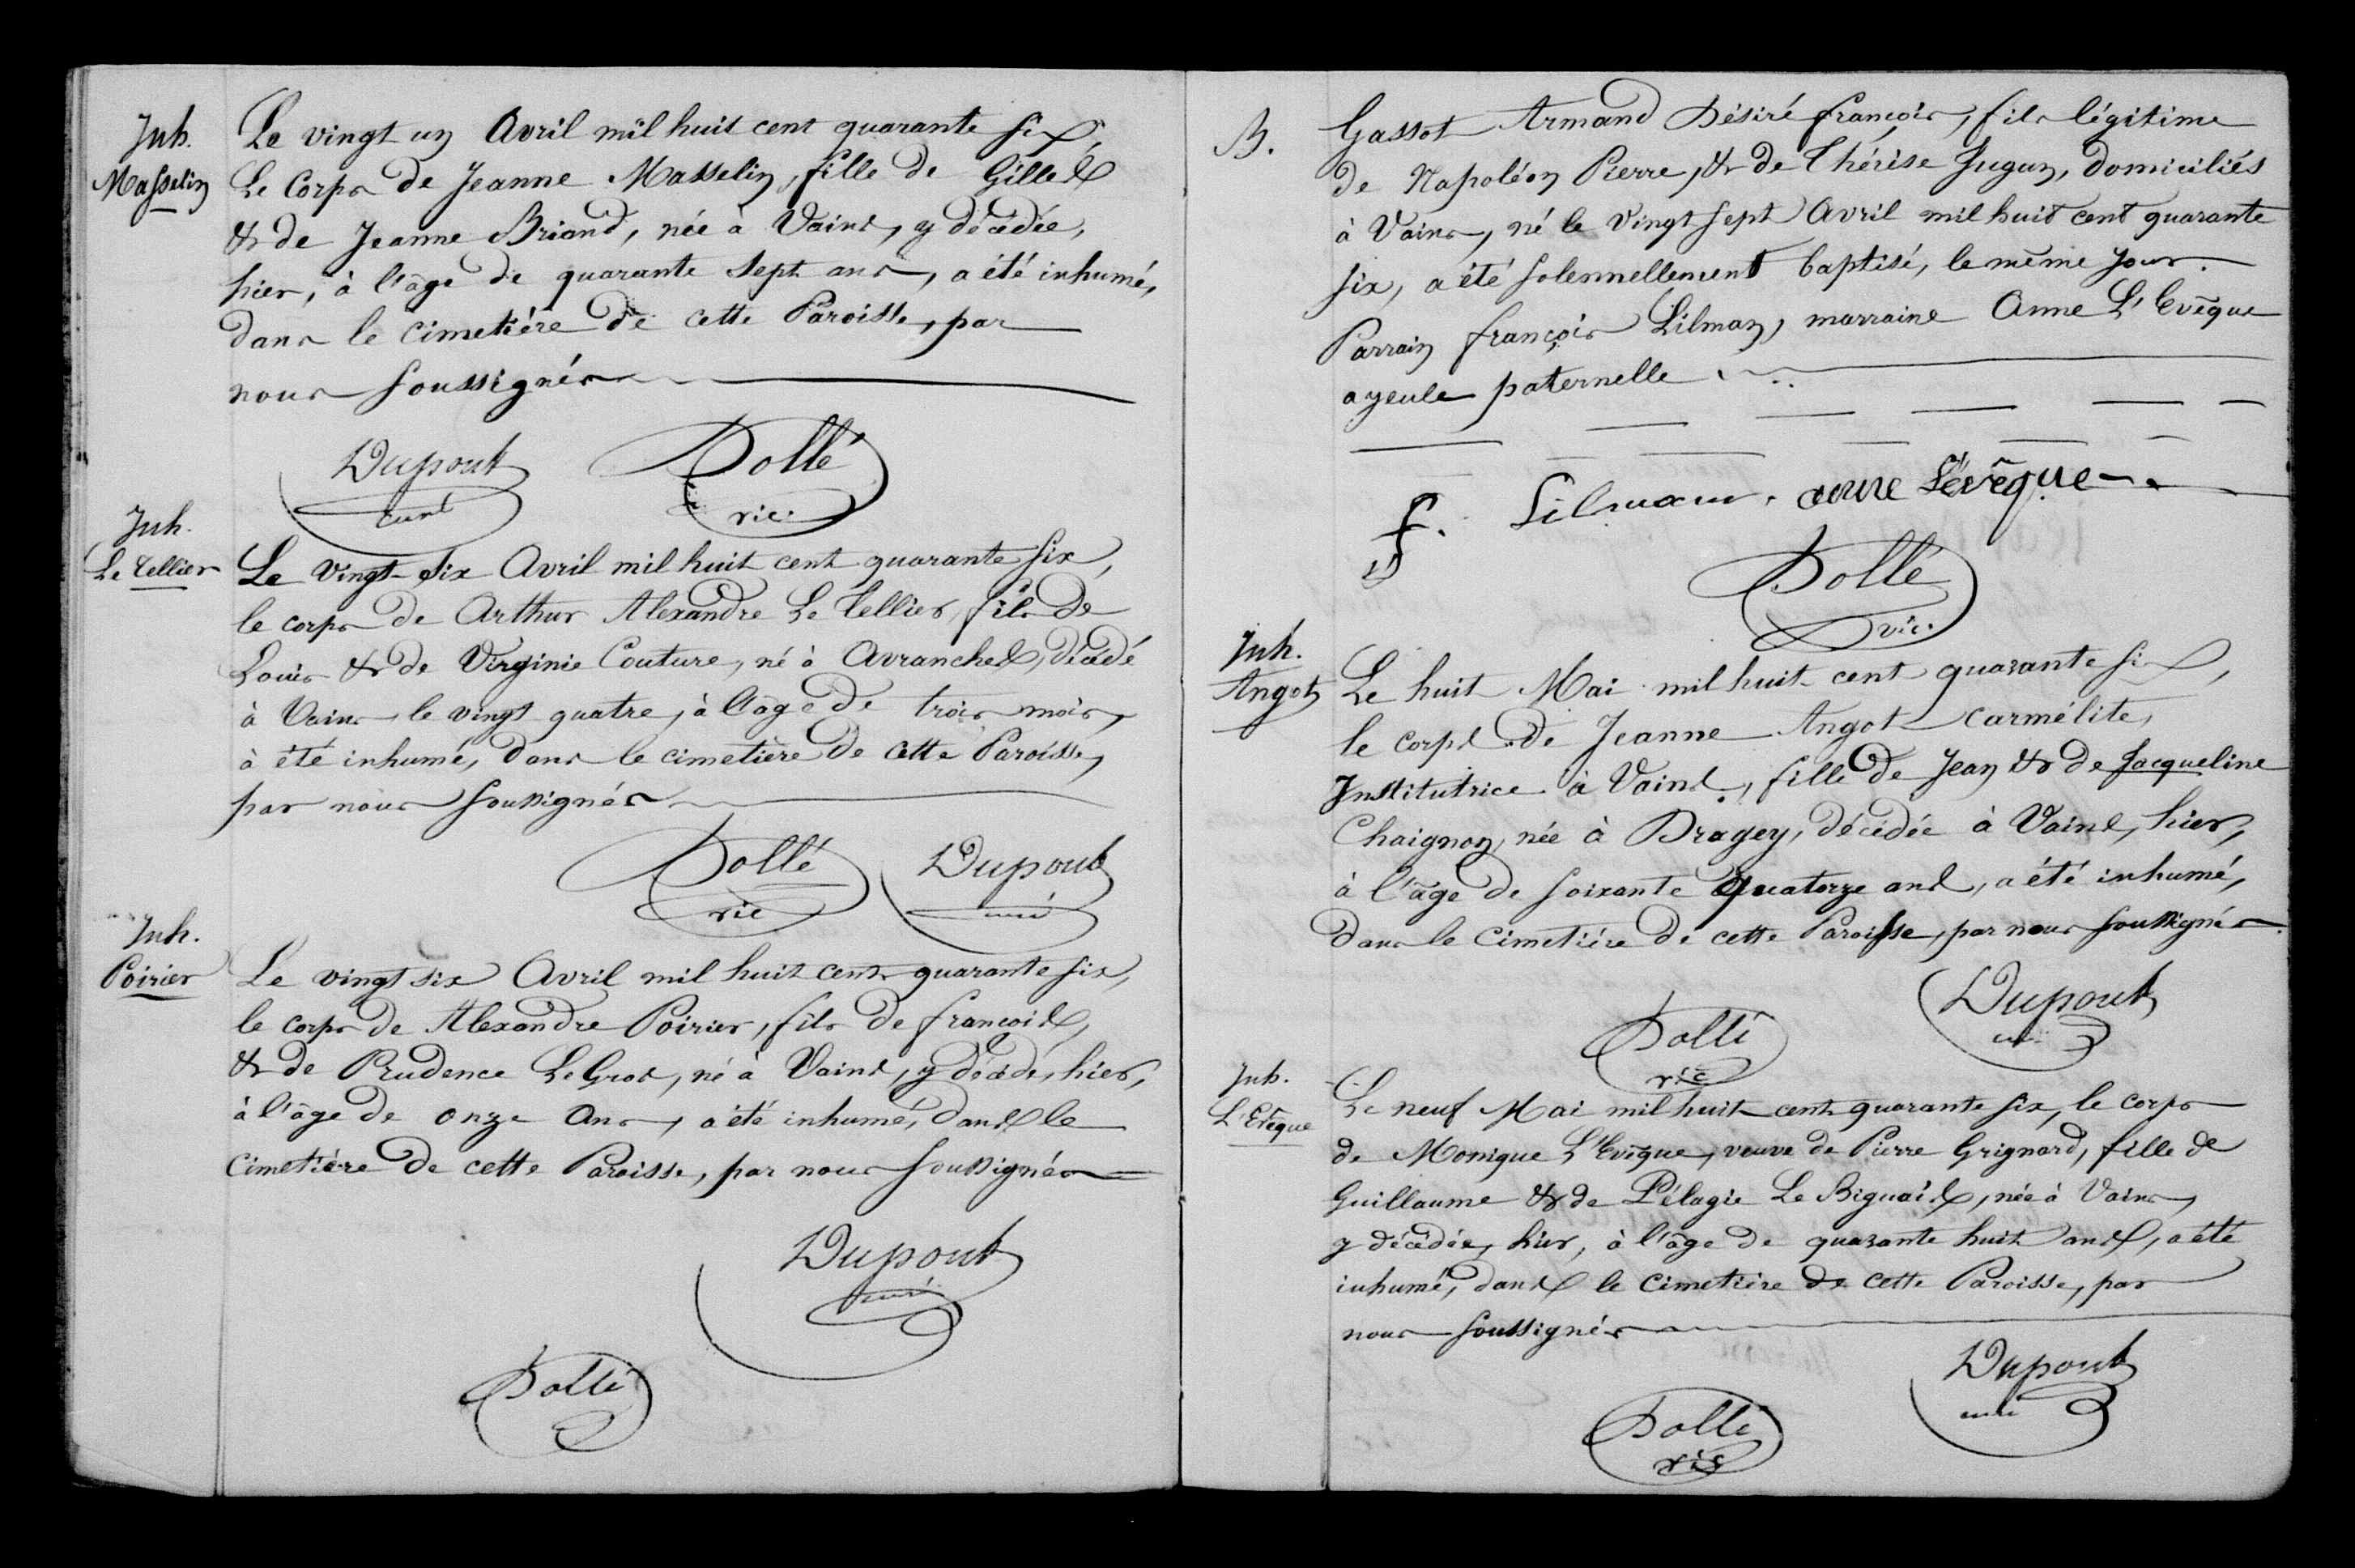 Inh.
Masselin
Le vingt un Avril mil huit cent quarante six,
Le Corps de Jeanne Masselin, fille de Gilles
& de Jeanne Briand, née à Vains, y décédée,
hier, à l'âge de quarante sept ans, a été inhumé,
dans le cimetière de cette Paroisse, par
nous soussignés
Dupont Dollé
curé vic.
Inh.
Le Tellier
Le vingt-six Avril mil huit cent quarante six,
le corps de Arthur Alexandre Le Tellier, fils de
Louis & de Virginie Couture, né à Avranches, décédé
à Vains le vingt quatre, à l'âge de trois mois,
à été inhumé, dans le cimetière de cette Paroisse,
par nous soussignés
Dollé Dupont
vic curé
Inh.
Poirier
Le vingt six Avril mil huit cent quarante six,
le corps de Alexandre Poirier, fils de françois,
& de Prudence LeGros, né à Vains, y décédé, hier,
à l'âge de onze ans, a été inhumé, dans le
cimetière de cette Paroisse, par nous soussignés
Dupont
curé
Dollé
B.
Gassot Armand Désiré françois, fils légitime
de Napoléon Pierre, & de Thérèse Jugun, domiciliés
à Vains, né le vingt sept Avril mil huit cent quarante
six, a été solennellement baptisé, le même jour.
Parrain françois Lilman, marraine Anne L'Evêque
ayeule paternelle
f. Lilman. anne L'évêque
Dollé
vic.
Inh.
Angot
Le huit Mai mil huit cent quarante six,
le corps de Jeanne Angot carmélite,
Institutrice à Vains, fille de Jean & de Jacqueline
Chaignon, née à Dragey, décédée à Vains, hier,
à l'âge de soixante quatorze ans, a été inhumé,
dans le cimetière de cette Paroisse, par nous soussignés
Dupont
curé
Dollé
vic
Inh.
L'Evêque
Le neuf Mai mil huit cent quarante six, le corps
de Monique L'Evêque, veuve de Pierre Grignard, fille de
Guillaume & de Pélagie Le Biguais, née à Vains,
y décédée, hier, à l'âge de quarante huit ans, a été
inhumé, dans le cimetière de cette Paroisse, par
nous soussignés
Dupont
curé
Dollé
vic